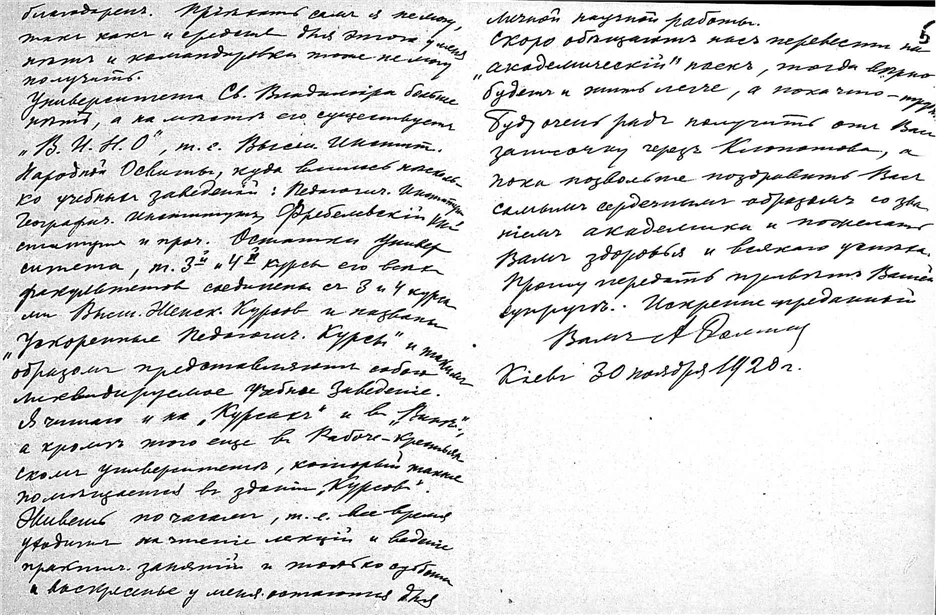 благодаренъ. Пріѣхать самъ я не могу,
такъ какъ и средствъ для этого у меня
нѣтъ и командировки тоже не могу
получить.
Университета Св. Владиміра больше
нѣтъ, а на мѣстѣ его существуетъ
„В. И. Н. О", т. е. Высш. Институт.
Народной Освиты, куда влилось нѣсколь-
ко учебныхъ заведеній: Педагогич. Институтъ
Географич. Институтъ, Фребелевскій Ин
ститутъ и проч. Остатки Универ
ситета, т. 3й и 4й курсы его всѣхъ
факультетовъ соединены съ 3 и 4 курса
ми Высш. Женск. Курсовъ и названы
„Ускоренные Педагогич. Курсы" и такимъ
образомъ представляютъ собою
ликвидируемое Учебное Заведеніе.
Я читаю и на „Курсахъ" и въ „Винѣ",
а кромѣ того еще въ Рабоче-Крестьян
скомъ университетѣ, который также
помѣщается въ зданіи „Курсовъ".
Живешь по часамъ, т. е. все время
уходитъ на чтеніе лекцій и веденіе
практич. занятій и только субботы
и воскресенье у меня остаются для
5
личной научной работы.
Скоро обѣщаютъ насъ перевести на
„академическій" паекъ, тогда вѣрно
будетъ и жить легче, а пока что –
Буду очень радъ получить отъ Васъ
записочку черезъ а
пока позвольте поздравить Васъ
самымъ сердечнымъ образомъ со зва
ніемъ академика и пожелать
Вамъ здоровья и всякаго успѣха.
Прошу передать привѣтъ Вашей
супругѣ. Искренне преданный
Вамъ А.
Кіевъ 30 ноября 1920 г.